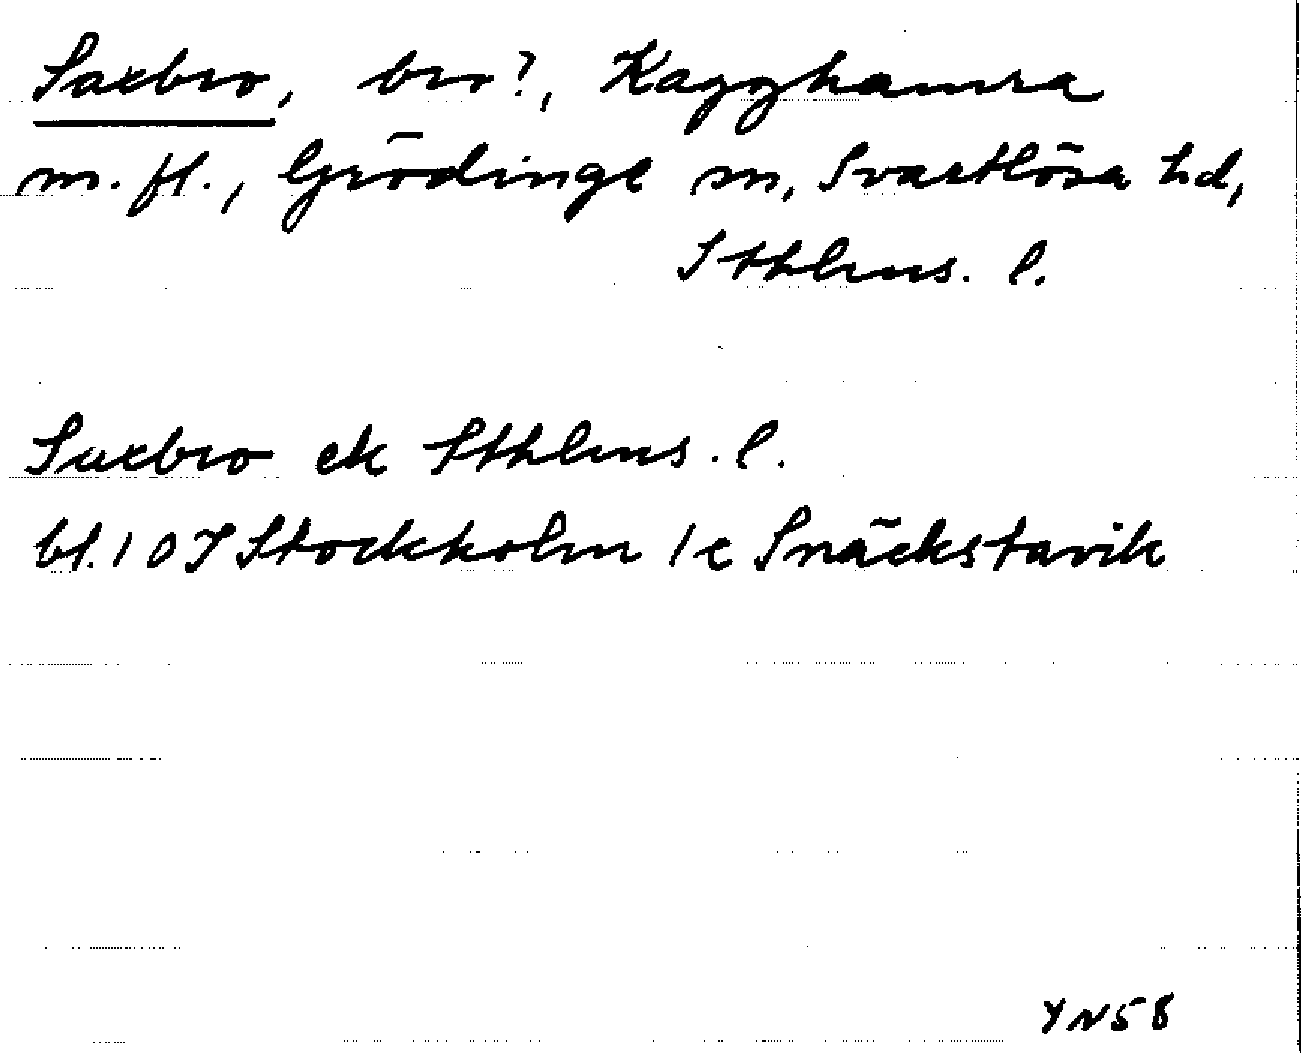 Saxbro, bro?, Kagghamra
m. fl., Grödinge sn, Svartlösa hd,
Sthlms. l.
Saxbro ek Sthlms. l.
bl. 10I Stockholm 1e Snäckstavik
YN58